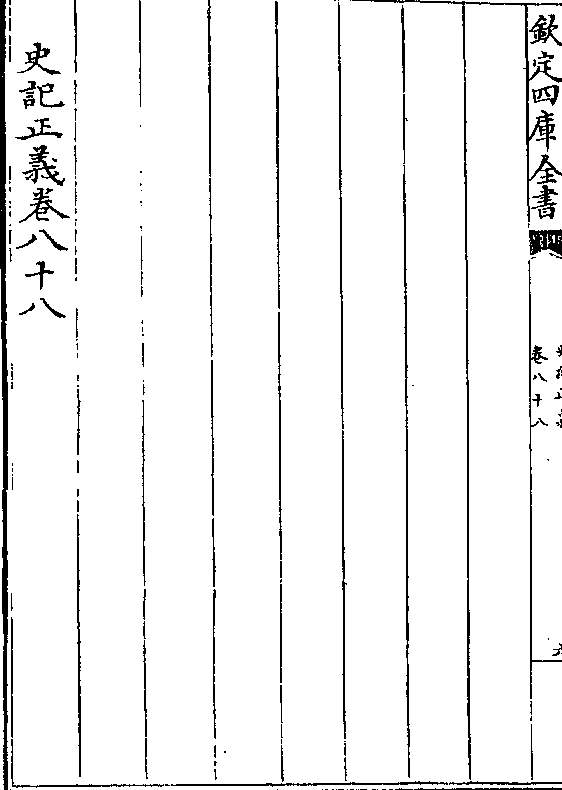 欽定四庫全書
卷八十八
史記正義卷八十八